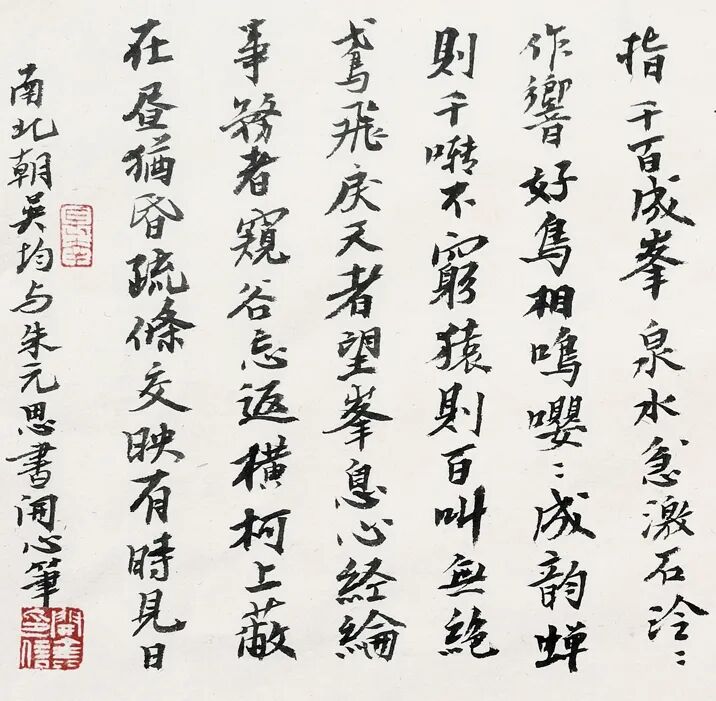 指千百成峯泉水急激石泠〻
作響好鳥相鳴嚶〻成韵蝉
則千囀不窮猿則百叫無絶
鳶飛戾天者望峯息心経綸
事務者窺谷忘返横柯上蔽
在昼猶昏疏條交映有時見日
南北朝吴均与朱元思書開心筆